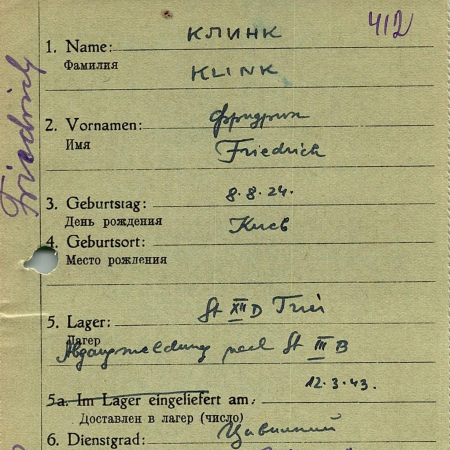 412
1. Name: КЛИНК
Фамилия KLINK
Friedrich
2. Vornamen: Фридрих
Имя Friedrich
3. Geburtstag: 8.8.24.
День рождения Киев
4. Geburtsort:
Место рождения
5. Lager: St XII D Trier
Лагер
Abgangsmeldung nach St III B
12.3.43.
5a. Im Lager eingeliefert am:
Доставлен в лагер (число)
6. Dienstgrad: Цивильный